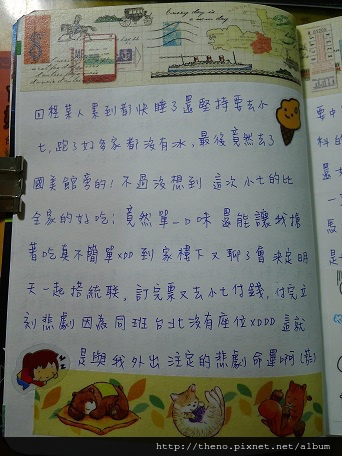 Every day is
a new day.
回程某人累到都快睡了還堅持要去小
七,跑了好多家都沒有冰,最後竟然去了
國美館旁的!不過沒想到 這次小七的比
全家的好吃;竟然單一口味 還能讓我撐
著吃真不簡單XDD 到家樓下又聊了會 決定明
天一起搭統聯,訂完票又去小七付錢,付完立
刻悲劇因為同班台北沒有座位XDDD 這就
是與我外出注定的悲劇命運啊(菸)
http://theno.pixnet.net/album